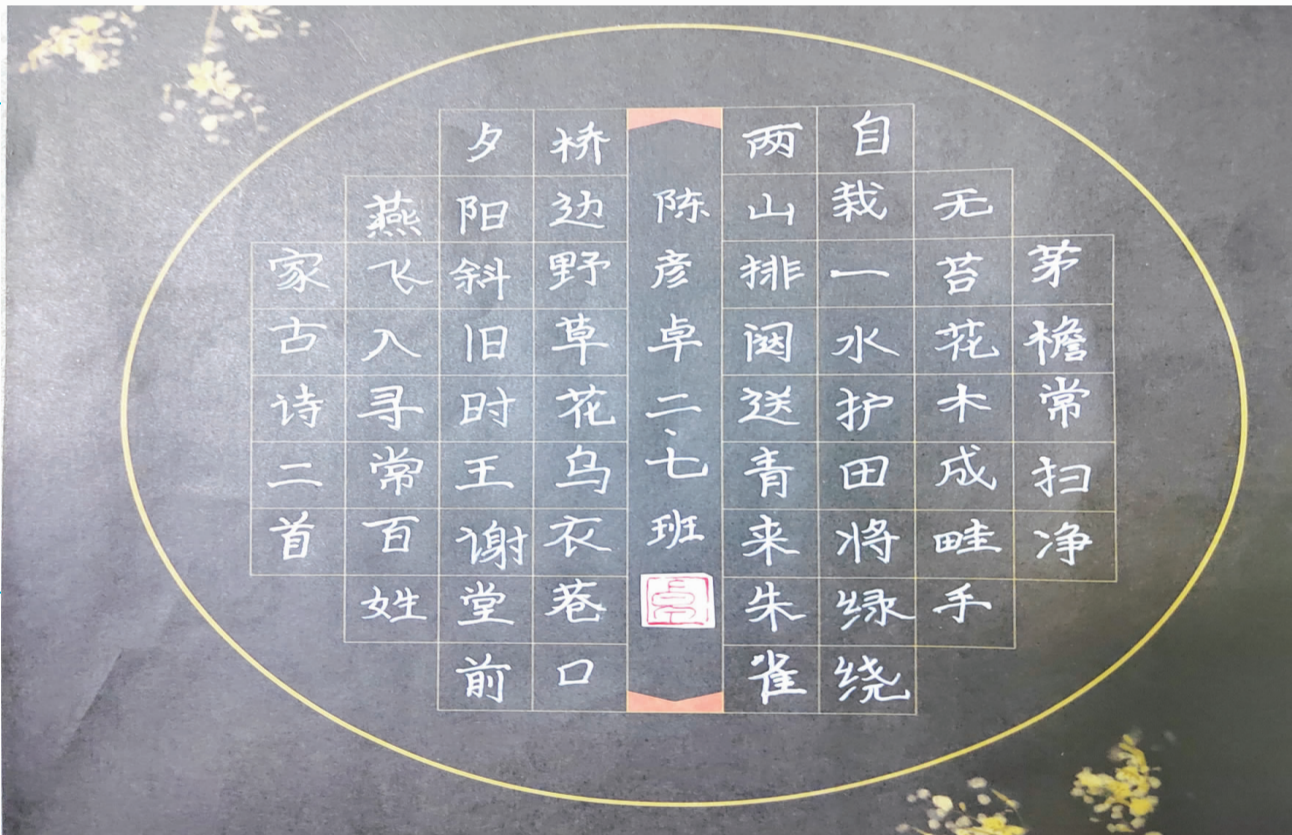 茅檐常扫净
无苔花木成畦手
自栽一水护田将绿绕
两山排闼送青来朱雀
桥边野草花乌衣巷口
夕阳斜旧时王谢堂前
燕飞入寻常百姓
家古诗二首
陈彦卓二、七班